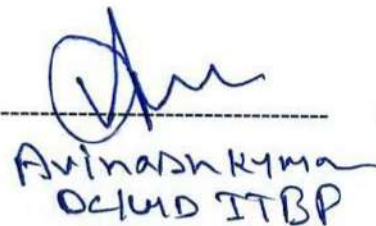 Avinash Kuma
DC/WD ITBP